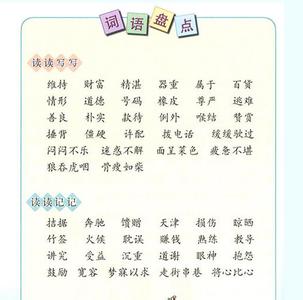 词语盘点
读读写写
维持 财富 精湛 器重 属于 百货
情形 道德 号码 橡皮 尊严 逃难
善良 朴实 款待 例外 喉结 赞赏
捶背 僵硬 许配 拨电话 缓缓驶过
闷闷不乐 迷惑不解 面呈菜色 疲惫不堪
狼吞虎咽 骨瘦如柴
读读记记
拮据 奔驰 馈赠 天津 损伤 晾晒
竹签 火候 耽误 赚钱 熟练 救导
讲究 受益 沉重 道谢 眼神 抱怨
鼓励 宽容 梦寐以求 走街串巷 将心比心